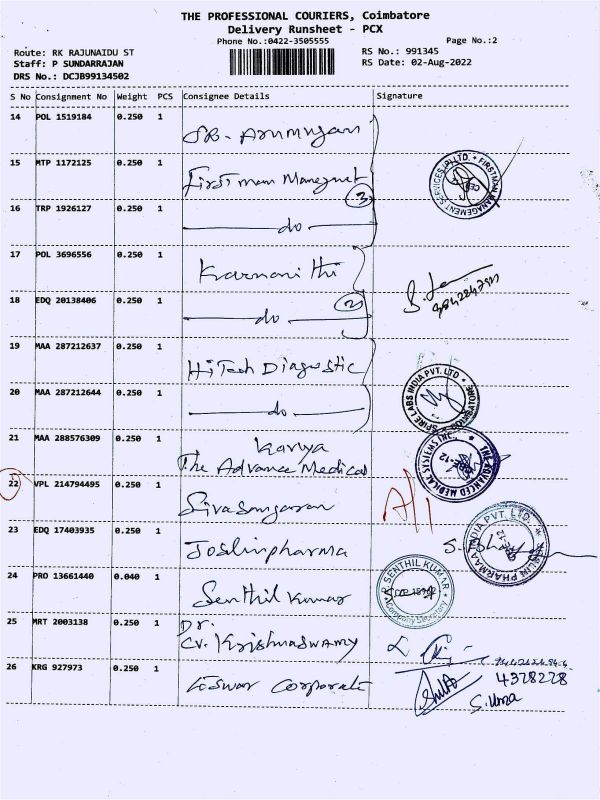 THE PROFESSIONAL COURIERS, Coimbatore
Delivery Runsheet - PCX
Phone No.:0422-3505555
Page No.:2
Route: RK RAJUNAIDU ST
RS No.: 991345
Staff: P SUNDARRAJAN
RS Date: 02-Aug-2022
DRS No.: DCJB99134502
S No Consignment No Weight PCS Consignee Details Signature
14 POL 1519184 0.250 1
15 MTP 1172125 0.250 1 First man
3
16 TRP 1926127 0.250 1 do
17 POL 3696556 0.250 1
2
18 EDQ 20138406 0.250 1 do
19 MAA 287212637 0.250 1 HiTech Diagnostic
20 MAA 287212644 0.250 1 do
21 MAA 288576309 0.250 1 Kavya
The Advance Medical
22 VPL 214794495 0.250 1
23 EDQ 17403935 0.250 1 Joslinpharma
24 PRO 13661440 0.040 1 Senthil Kumar
SENTHIL KUMAR
Company Secretary
25 MRT 2003138 0.250 1 Dr.
CV. Krishnaswamy
26 KRG 927973 0.250 1 Eswar Corporate
4378278
S. Uma